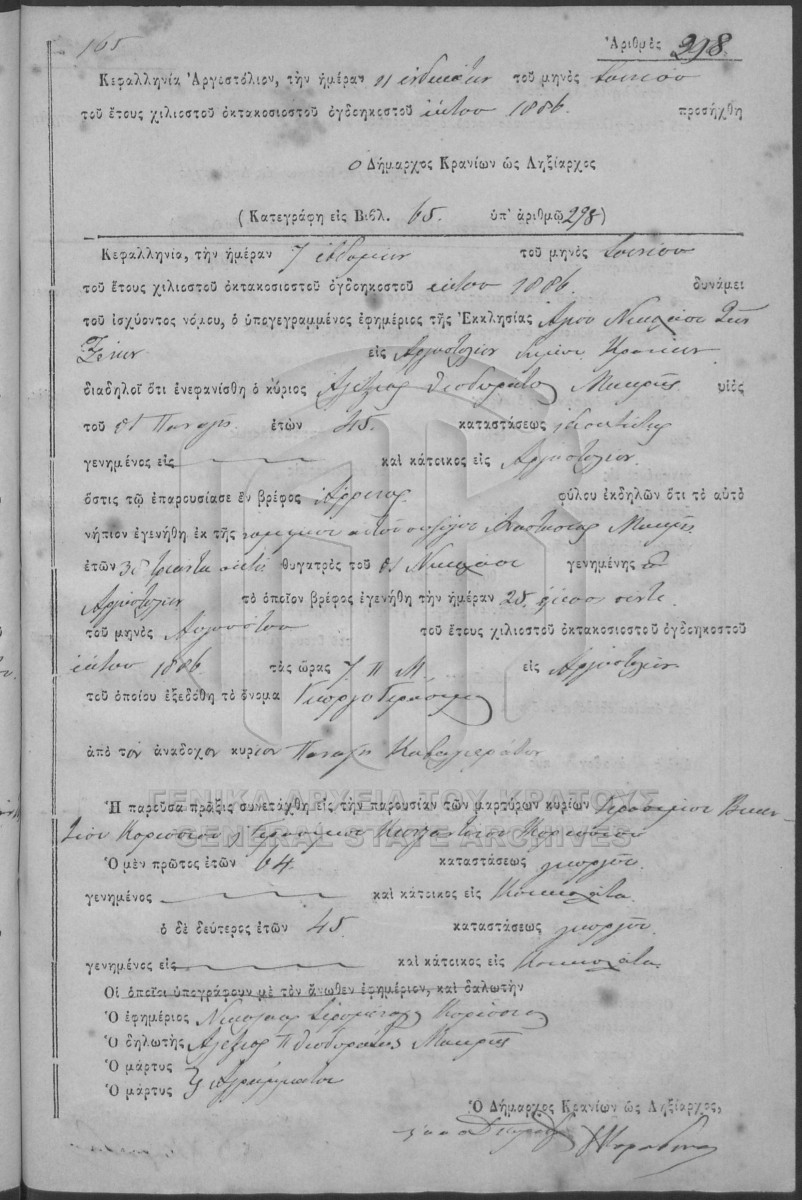 165
Ἀριθμὸς 298.
Κεφαλληνία Ἀργοστόλιον, τὴν ἡμέραν 11 ἑνδεκάτην τοῦ μηνὸς
τοῦ ἔτους χιλιοστοῦ ὀκτακοσιοστοῦ ὀγδοηκοστοῦ ἕκτου 1886. προσήχθη
ὁ Δήμαρχος Κρανίων ὡς Ληξίαρχος
(Κατεγράφη εἰς Βιβλ. 65. ὑπ' ἀριθμῷ 298)
Κεφαλληνία, τὴν ἡμέραν 7 ἑβδόμην τοῦ μηνὸς
τοῦ ἔτους χιλιοστοῦ ὀκτακοσιοστοῦ ὀγδοηκοστοῦ ἕκτου 1886. δυνάμει
τοῦ ἰσχύοντος νόμου, ὁ ὑπογεγραμμένος ἐφημέριος τῆς Ἐκκλησίας Ἁγίου Νικολάου τῶν
Ξένων εἰς Ἀργοστόλιον δήμου Κρανίων
διαδηλοῖ ὅτι ἐνεφανίσθη ὁ κύριος Ἀλέξιος Θεοδωράτος Μακρῆς υἱὸς
τοῦ Παναγῆ ἐτῶν 45. καταστάσεως
γενημένος εἰς καὶ κάτοικος εἰς Ἀργοστόλιον
ὅστις τῷ ἐπαρουσίασε ἓν βρέφος ἄρρεν φύλου ἐκδηλῶν ὅτι τὸ αὐτὸ
νήπιον ἐγενήθη ἐκ τῆς νομίμου αὐτοῦ συζύγου Ἀναστασίας Μακρῆ
ἐτῶν τριάντα ὀκτὼ θυγατρὸς τοῦ Νικολάου γενημένης
Ἀργοστόλιον τὸ ὁποῖον βρέφος ἐγενήθη τὴν ἡμέραν 25. εἴκοσι πέντε
τοῦ μηνὸς Αὐγούστου τοῦ ἔτους χιλιοστοῦ ὀκτακοσιοστοῦ ὀγδοηκοστοῦ
ἕκτου 1886. τὰς ὥρας 7 Π Μ. εἰς Ἀργοστόλιον
τοῦ ὁποίου ἐξεδόθη τὸ ὄνομα Γεώργιο Γεράσιμος
ἀπὸ τὸν ἀνάδοχον κύριον Παναγῆ
ΓΕΝΙΚΑ ΑΡΧΕΙΑ ΤΟΥ ΚΡΑΤΟΥΣ
GENERAL STATE ARCHIVES
Ἡ παροῦσα πρᾶξις συνετάχθη εἰς τὴν παρουσίαν τῶν μαρτύρων κυρίων Γερασίμου
Γερασίμου
Ὁ μὲν πρῶτος ἐτῶν 64. καταστάσεως γεωργοῦ
γενημένος καὶ κάτοικος εἰς Κοκκολάτα
ὁ δὲ δεύτερος ἐτῶν 45. καταστάσεως γεωργοῦ
γενημένος εἰς καὶ κάτοικος εἰς Κοκκολάτα
Οἱ ὁποῖοι ὑπογράφουν μὲ τὸν ἄνωθεν ἐφημέριον, καὶ δηλωτὴν
Ὁ ἐφημέριος Νικόλαος
Ὁ δηλωτὴς Ἀλέξιος Π Θεοδωράτος Μακρῆς
Ὁ μάρτυς
Ὁ μάρτυς Ἀγράμματοι
Ὁ Δήμαρχος Κρανίων ὡς Ληξίαρχος,